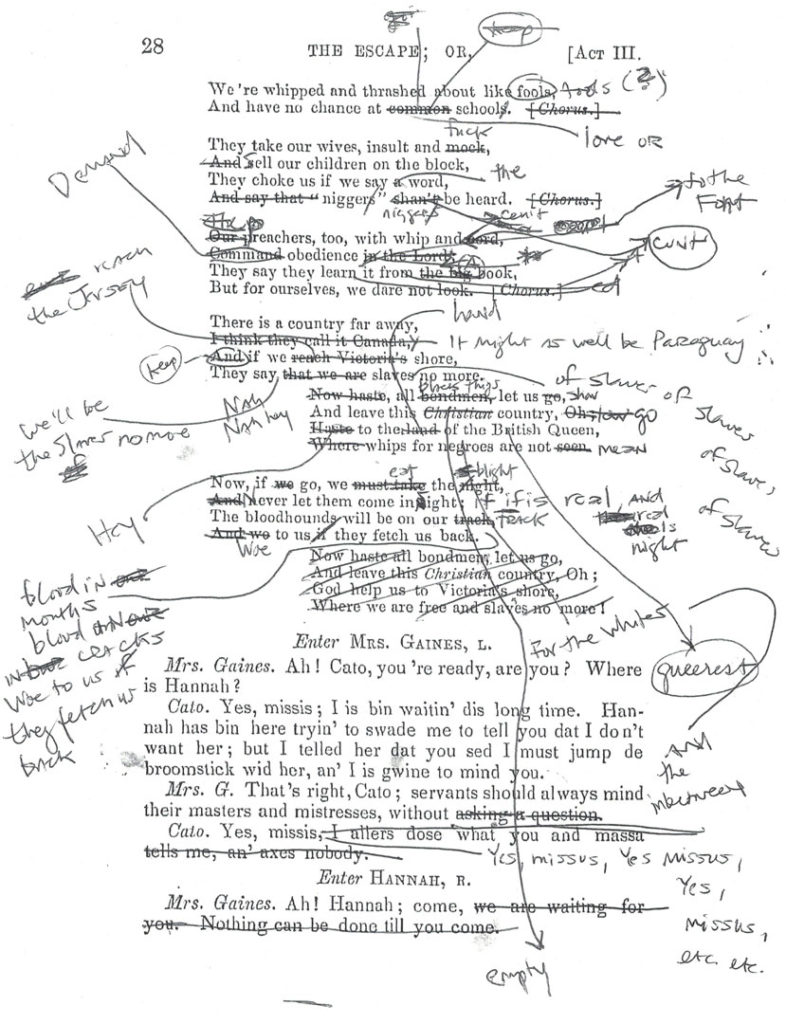 28 THE ESCAPE; OR, [ACT III.
keep
We're whipped and thrashed about like fools, fools (?)
And have no chance at common schools. [Chorus.]
love OR
fuck
They take our wives, insult and mock,
And sell our children on the block,
the
They choke us if we say a word,
And say that "niggers" shan't be heard. [Chorus.]
niggers
cunt
to the
Font
Demand
Our preachers, too, with whip and cord,
cunt
Command obedience in the Lord;
They say they learn it from the big book,
But for ourselves, we dare not look. [Chorus.]
ed
reach
the Jersey
hand
There is a country far away,
I think they call it Canada,
It might as well be Paraguay
keep
And if we reach Victoria's shore,
They say that we are slaves no more.
We'll be
the slaves no more
Nah
Nah hey
Hey
of slaves of
slaves
of slaves,
of slaves
Now haste, all bondmen, let us go,
And leave this Christian country, Oh; go
Haste to the land of the British Queen,
Where whips for negroes are not seen. mean
eat
blight
Now, if we go, we must take the night,
And never let them come in sight;
if if is real, and
real
is
night
The bloodhounds will be on our track, track
And wo to us if they fetch us back.
Woe
Now haste all bondmen, let us go,
And leave this Christian country, Oh;
God help us to Victoria's shore,
Where we are free and slaves no more!
blood in
months
blood
in cracks
Woe to us if
they fetch us
back
For the whites
queerest
And
the
inbetween
Enter MRS. GAINES, L.
Mrs. Gaines. Ah! Cato, you're ready, are you? Where
is Hannah?
Cato. Yes, missis; I is bin waitin' dis long time. Han-
nah has bin here tryin' to swade me to tell you dat I don't
want her; but I telled her dat you sed I must jump de
broomstick wid her, an' I is gwine to mind you.
Mrs. G. That's right, Cato; servants should always mind
their masters and mistresses, without asking a question.
Cato. Yes, missis, I allers dose what you and massa
tells me, an' axes nobody.
Yes, missus, Yes missus,
Yes,
missus,
etc. etc.
Enter HANNAH, R.
Mrs. Gaines. Ah! Hannah; come, we are waiting for
you. Nothing can be done till you come.
empty